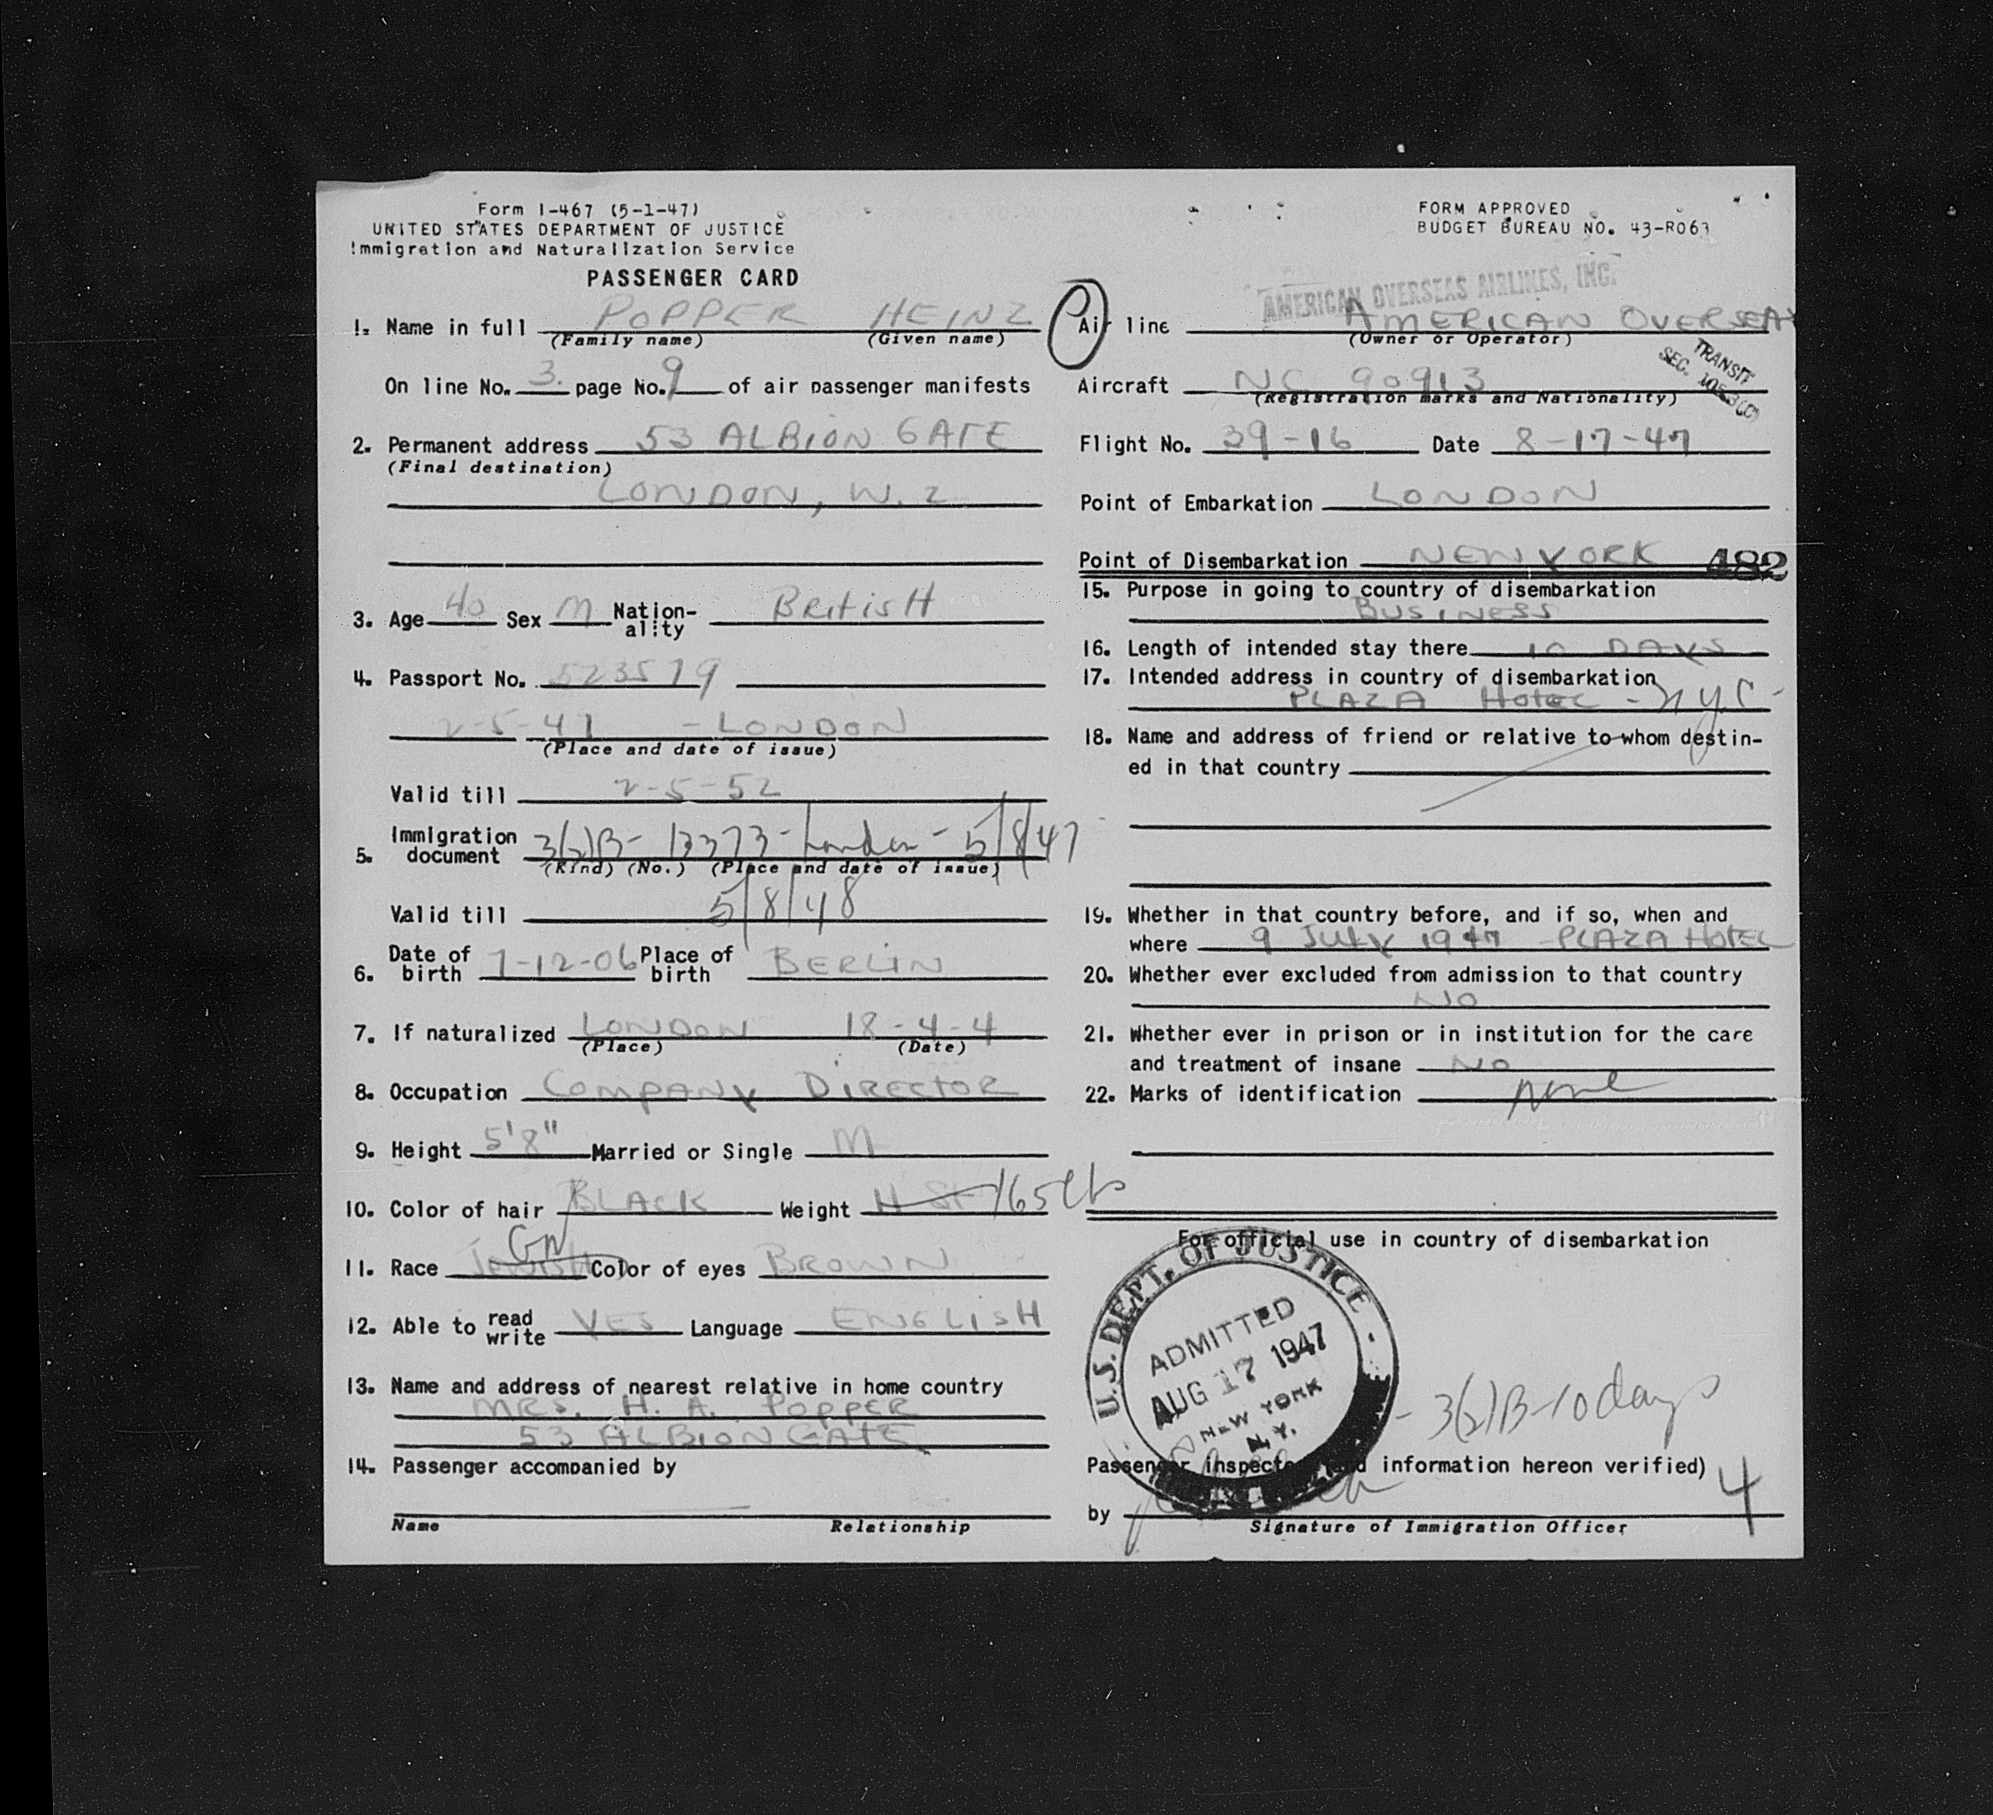 Form I-467 (5-1-47)
UNITED STATES DEPARTMENT OF JUSTICE
Immigration and Naturalization Service
PASSENGER CARD
1. Name in full POPPER HEINZ
(Family name) (Given name)
On line No. 3. page No. 9 of air passenger manifests
2. Permanent address 53 ALBION GATE
(Final destination)
LONDON, W. 2
3. Age 40 Sex M Nation-ality BRITISH
4. Passport No. 523519
2-5-47 - LONDON
(Place and date of issue)
Valid till 2-5-52
5. Immigration document 3(2)B- 13373- London - 5/8/47
(Kind) (No.) (Place and date of issue)
Valid till 5/8/48
6. Date of birth 7-12-06 Place of birth BERLIN
7. If naturalized LONDON 18-4-4
(Place) (Date)
8. Occupation COMPANY DIRECTOR
9. Height 5'8" Married or Single M
10. Color of hair BLACK Weight 11 ST 165 lbs
11. Race JEWISH Color of eyes BROWN
12. Able to read write YES Language ENGLISH
13. Name and address of nearest relative in home country
MRS. H. A. POPPER
53 ALBION GATE
14. Passenger accompanied by
Name Relationship
FORM APPROVED
BUDGET BUREAU NO. 43-R063
AMERICAN OVERSEAS AIRLINES, INC.
Air line AMERICAN OVERSEAS
(Owner or Operator)
TRANSIT
SEC.
Aircraft NC 90913
(Registration marks and Nationality)
Flight No. 39-16 Date 8-17-47
Point of Embarkation LONDON
Point of Disembarkation NEW YORK 482
15. Purpose in going to country of disembarkation
BUSINESS
16. Length of intended stay there 10 DAYS
17. Intended address in country of disembarkation
PLAZA HOTEL - NYC -
18. Name and address of friend or relative to whom destin-
ed in that country
19. Whether in that country before, and if so, when and
where 9 JULY 1947 - PLAZA HOTEL
20. Whether ever excluded from admission to that country
NO
21. Whether ever in prison or in institution for the care
and treatment of insane NO
22. Marks of identification none
For official use in country of disembarkation
U.S. DEPT. OF JUSTICE
ADMITTED
AUG 17 1947
NEW YORK
N.Y.
- 3(2)B-10 days
Passenger inspected (and information hereon verified) 4
by
Signature of Immigration Officer